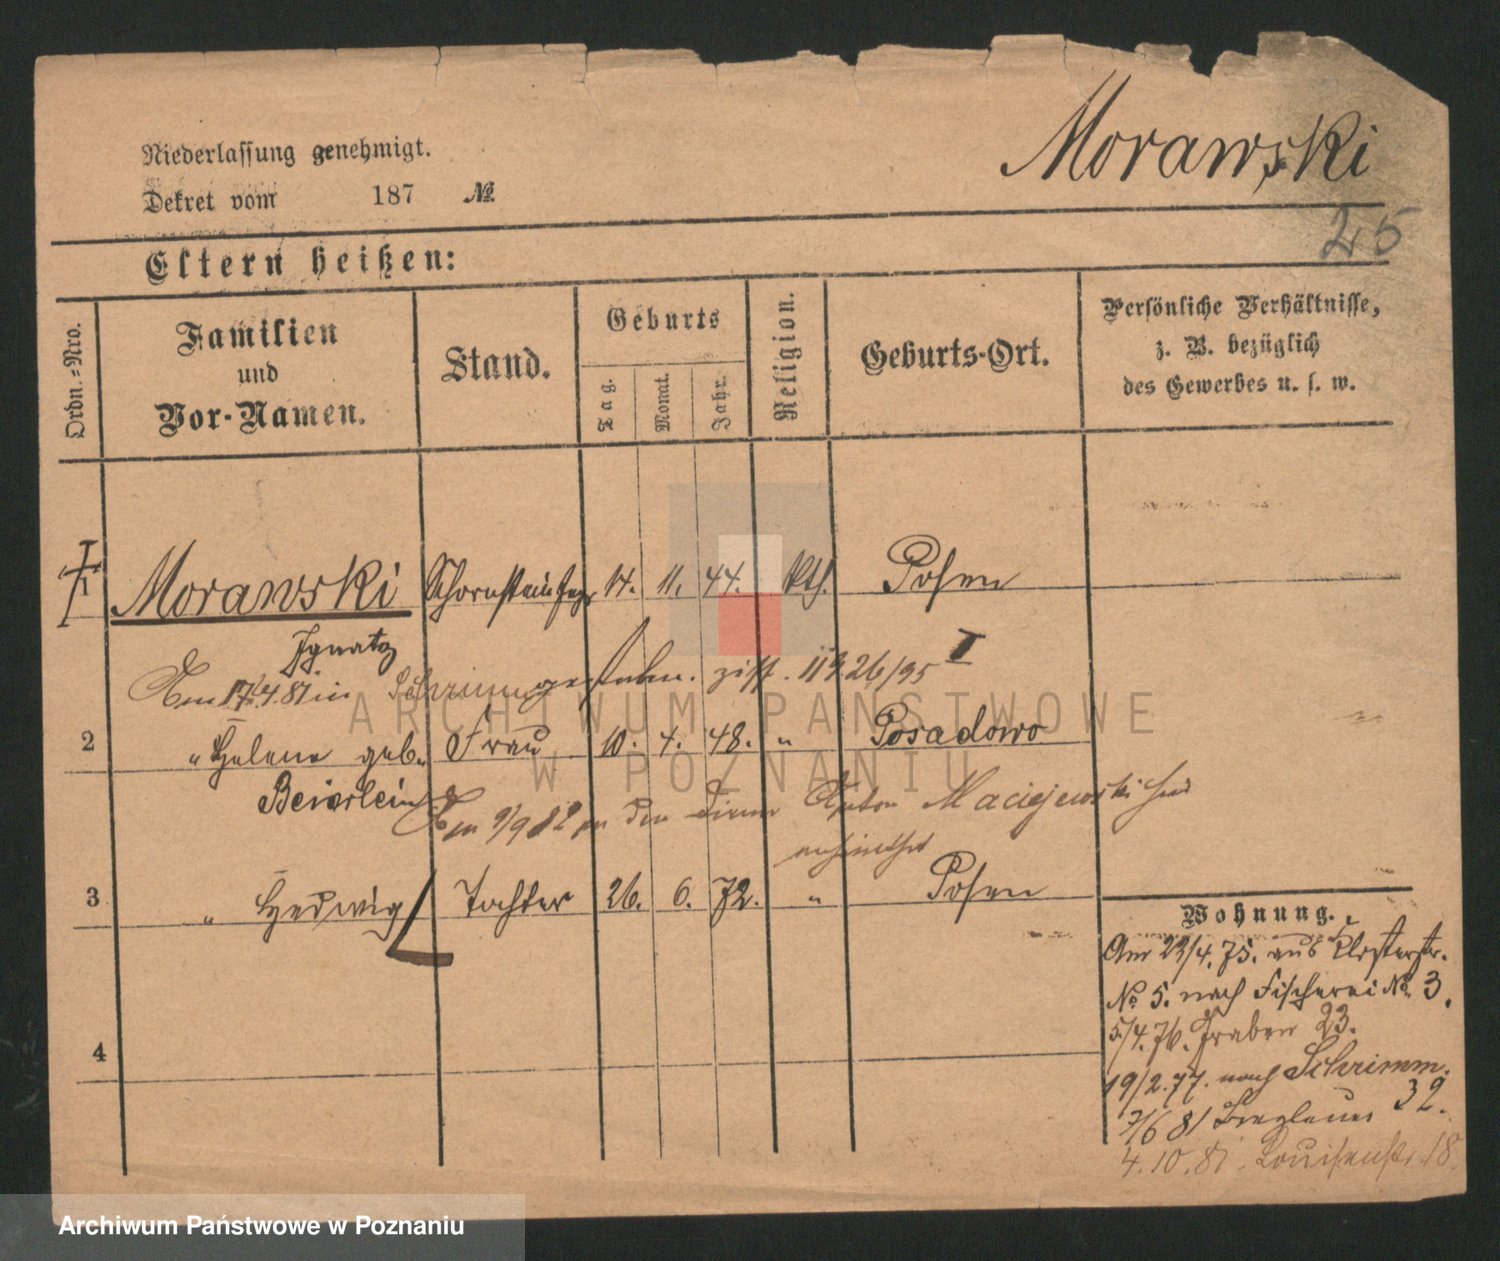 Niederlassung genehmigt.
Dekret vom 187 №
Morawski
25
Eltern heißen:
Ordn.-Nro.
Familien
und
Vor-Namen.
Stand.
Geburts
Tag.
Monat.
Jahr.
Religion.
Geburts-Ort.
Persönliche Verhältnisse,
z. B. bezüglich
des Gewerbes u. s. w.
1 Morawski Schornsteinfeger 14. 11. 44. kth. Posen
Ignatz
Am 17.4.81 in Schrimm gestorben. 26/95 I
2 " Helene geb. Frau 10. 4. 48. " Posadowo
Beierlein
Am 9/9 82 an den Diener Anton Maciejewski hier
verheirathet
3 " Hedwig Tochter 26. 6. 72. " Posen
4
Wohnung.
Am 23/4. 75. aus Klosterstr.
No 5. nach Fischerei No 3.
5/4. 76. Graben 23.
19/2. 77. nach Schrimm.
7/6 81 32.
4.10.81. Louisenstr. 18
ARCHIWUM PAŃSTWOWE
W POZNANIU
Archiwum Państwowe w Poznaniu